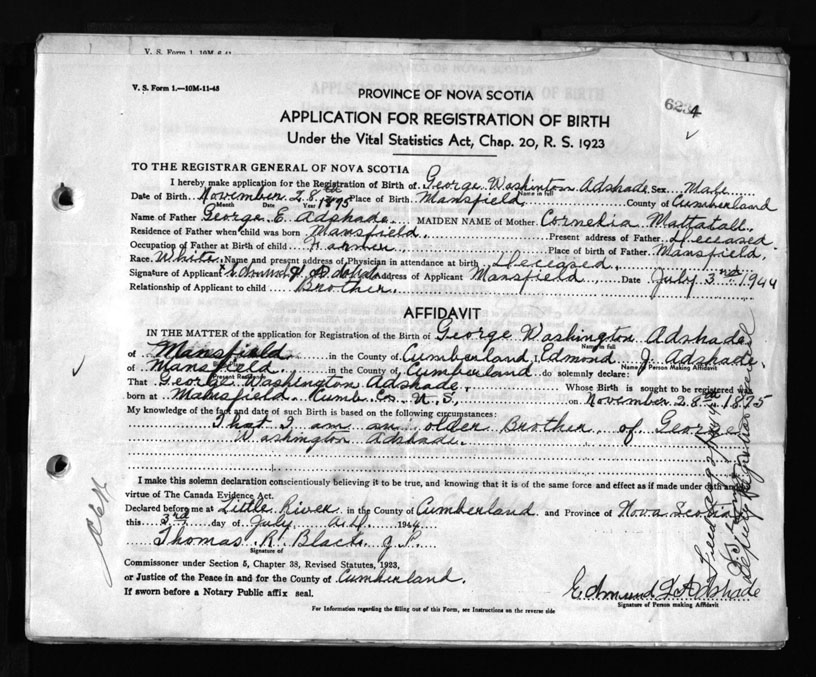 V. S. Form 1. 10M-6-41
V. S. Form 1.—10M-11-43
PROVINCE OF NOVA SCOTIA
6234
APPLICATION FOR REGISTRATION OF BIRTH
Under the Vital Statistics Act, Chap. 20, R. S. 1923
TO THE REGISTRAR GENERAL OF NOVA SCOTIA
I hereby make application for the Registration of Birth of George Washinton Adshade Sex Male
Name in full
Date of Birth November 28th 1875 Place of Birth Mansfield County of Cumberland
Month Date Year
Name of Father George E. Adshade MAIDEN NAME of Mother Cornelia Mattatall
Residence of Father when child was born Mansfield Present address of Father Deceased
Occupation of Father at Birth of child Farmer Place of birth of Father Mansfield.
Race White Name and present address of Physician in attendance at birth Deceased.
Signature of Applicant Edmund J. Adshade Address of Applicant Mansfield Date July 3 1944
Relationship of Applicant to child Brother.
AFFIDAVIT
IN THE MATTER of the application for Registration of the Birth of George Washington Adshade
Name in full
of Mansfield in the County of Cumberland, I, Edmond J. Adshade.
Name of Person Making Affidavit
of Mansfield. in the County of Cumberland do solemnly declare:
Present Residence
That George Washington Adshade. Whose Birth is sought to be registered was
born at Mansfield Cumb. Co. N. S. on November 28th 1875
My knowledge of the fact and date of such Birth is based on the following circumstances:
That I am an older Brother of George
Washington Adshade.
I make this solemn declaration conscientiously believing it to be true, and knowing that it is of the same force and effect as if made under oath and
virtue of The Canada Evidence Act.
Declared before me at Little River in the County of Cumberland and Province of Nova Scotia
this 3rd day of July A.D. 1944
Thomas R. Black J.P.
Signature of
Commissoner under Section 5, Chapter 38, Revised Statutes, 1923,
or Justice of the Peace in and for the County of Cumberland.
If sworn before a Notary Public affix seal.
Edmund J. Adshade
Signature of Person making Affidavit
For Information regarding the filling out of this Form, see Instructions on the reverse side
Deputy Registrar General